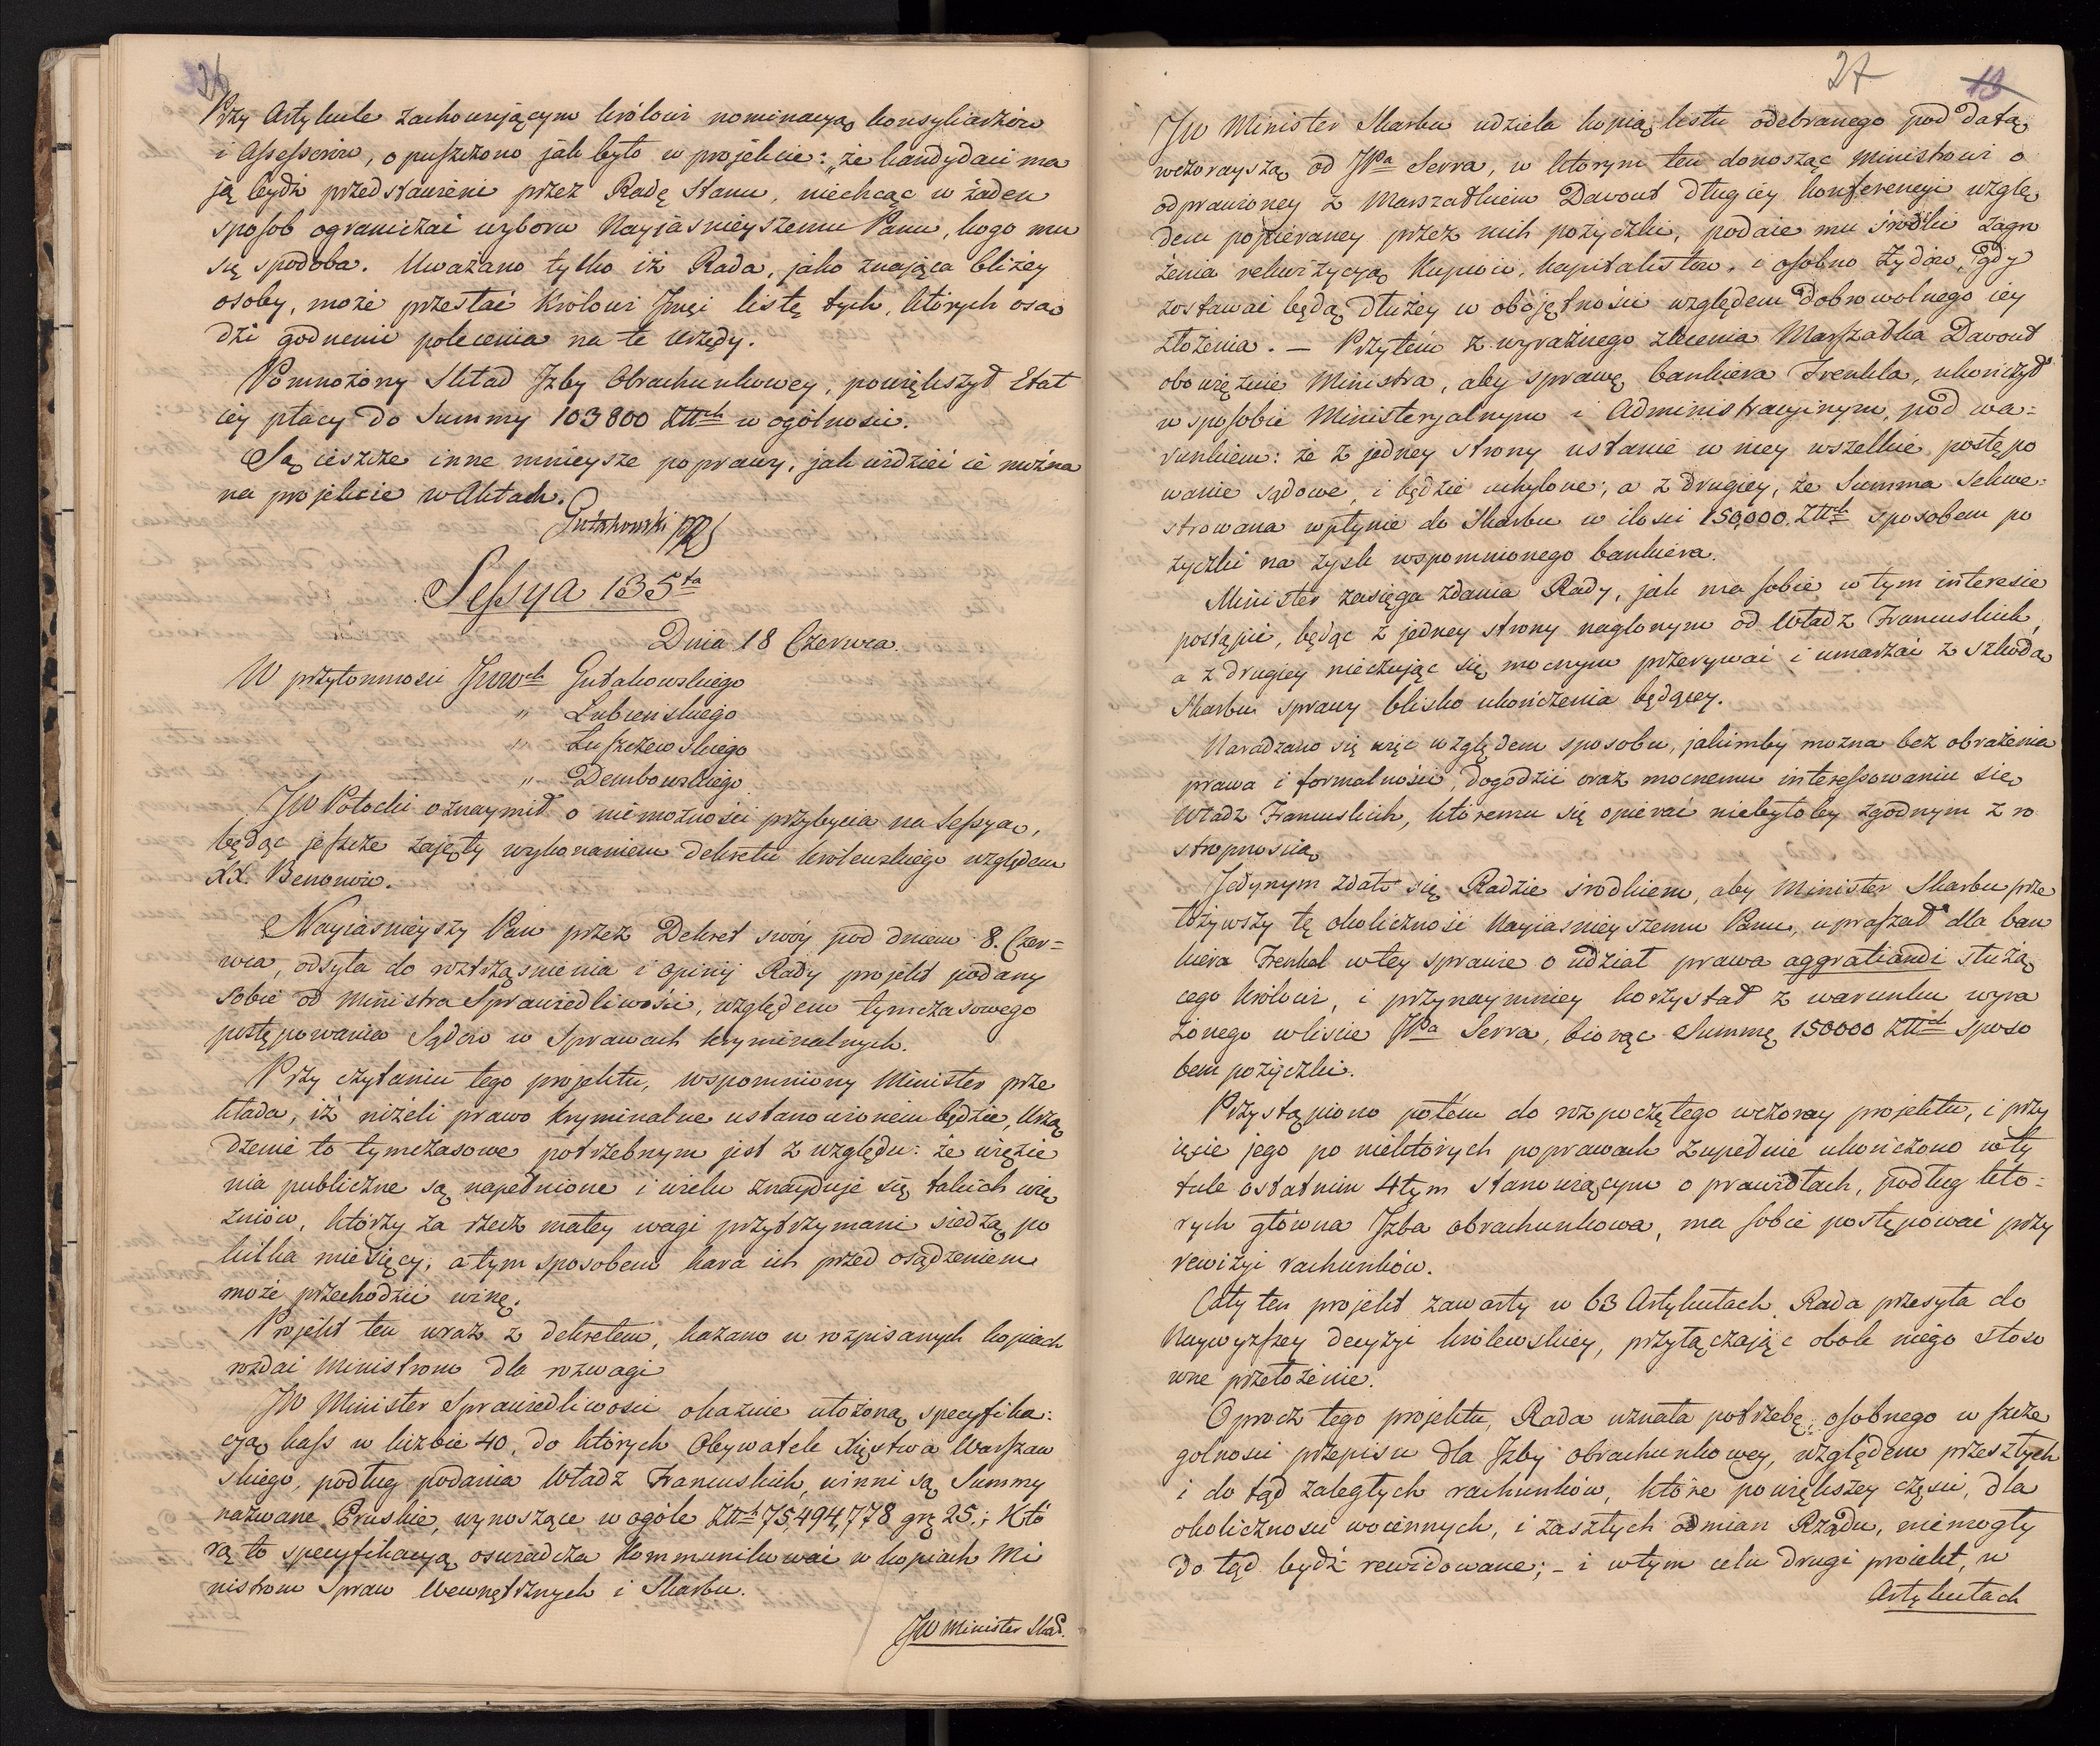 26
Przy Artykule zachowującym królowi nominacyą konsyliarzów
i Assessorów, opuszczono jak było w projekcie: „że kandydaci ma
ją bydź przedstawieni przez Radę Stanu, niechcąc w żaden
sposob ograniczać wyboru Nayjasnieyszemu Panu, kogo mu
się spodoba. Uważano tylko iż Rada, jako znająca bliżey
osoby, może przesłać Królowi Jmci listę tych, których osą
dzi godnemi polecenia na te urzędy.
Pomnożony Skład Jzby Obrachunkowey, powiększył Etat
iey płacy do Summy 103800 Złłch w ogólnosci.
Są ieszcze inne mnieysze poprawy, jak widzieć ie można
na projekcie w Aktach.
Gutakowski
Sessya 135ta
Dnia 18 Czerwca.
W przytomnosci JWWch Gutakowskiego
" Łubienskiego
" Łuszczewskiego
" Dembowskiego
JW Potocki oznaymił o niemożnosci przybycia na Sessyą,
będąc jeszcze zajęty wykonaniem dekretu królewskiego względem
XX. Benonów.
Nayiasnieyszy Pan przez Dekret swóy pod dniem 8. Czer=
wca, odsyła do roztrząsnienia i opinij Rady projekt podany
sobie od Ministra Sprawiedliwości, względem tymczasowego
postępowania Sądów w Sprawach kryminalnych.
Przy czytaniu tego projektu, wspomniony Minister prze
kłada, iż niżeli prawo kryminalne ustanowionem będzie, Urzą
dzenie to tymczasowe potrzebnym jest z względu: że więzie
nia publiczne są napełnione i wielu znayduje się takich wię
zniów, którzy za rzecz małey wagi przytrzymani siedzą po
kilka miesięcy, a tym sposobem kara ich przed osądzeniem
może przechodzić winę.
Projekt ten wraz z dekretem, kazano w rozpisanych kopiach
rozdać Ministrom dla rozwagi
JW Minister Sprawiedliwosci okazuie ułożoną specyfika:
cyą kass w liczbie 40, do których Obywatele Xięstwa Warszaw
skiego, podług podania Władz Francuskich, winni są Summy
nazwane Pruskie, wynoszące w ogóle Złłch 75,494,778 grz 25.; Któ
rą to specyfikacyą oswiadcza Kommunikować w kopiach Mi
nistrom Spraw Wewnętrznych i Skarbu.
JW Minister Skar.
27
13
JW Minister Skarbu udziela kopią listu odebranego pod datą
wczorayszą od JPa Serra, w ktorym ten donosząc Ministrowi o
odprawioney z Marszałkiem Davout długiey konferencyi wzglę
dem popieraney przez nich pożyczki, podaie mu środki zagro
żenia rekwizycyą Kupców, kapitalistów, i osobno Żydów, gdy
zostawać będą dłużey w obojętności względem dobrowolnego iey
złożenia. — Przytém z wyraźnego zlecenia Marszałka Davout
obowięzuie Ministra, aby sprawę bankiera Frenkla, ukończył
w sposobie Ministeryalnym i Administracyinym, pod wa=
runkiem: że z jedney strony ustanie w niey wszelkie postępo
wanie sądowe, i będzie uchylone; a z drugiey, że Summa sekwe=
strowana wpłynie do Skarbu w ilosci 150,000. Złłch sposobem po
życzki na zysk wspomnionego bankiera.
Minister zasięga zdania Rady, jak ma sobie w tym interesie
postąpić, będąc z jedney strony naglonym od Władz Francuskich,
a z drugiey nieczując się mocnym przerywać i umarzać z szkodą
Skarbu sprawy blisko ukończenia będącey.
Naradzano się więc względem sposobu, jakimby można bez obrażenia
prawa i formalności, dogodzić oraz mocnemu interessowaniu się
Władz Francuskich, któremu się opierać niebyłoby zgodnym z ro
stropnoscią
Jedynym zdało się Radzie środkiem, aby Minister Skarbu prze
łożywszy tę okoliczność Nayiasnieyszemu Panu, upraszał dla ban
kiera Frenkel w tey sprawie o udział prawa aggratiandi służą
cego Królowi, i przynaymniey korzystał z warunku wyra
żonego w liscie JPa Serra, biorąc Summę 150000 Złłch sposo
bem pożyczki.
Przystąpiono potém do rozpoczętego wczoray projektu, i przy
ięcie jego po niektórych poprawach zupełnie ukończono w ty
tule ostatnim 4tym stanowiącym o prawidłach, podług któ=
rych główna Jzba obrachunkowa, ma sobie postępować przy
rewizyi rachunków.
Cały ten projekt zawarty w 63 Artykułach Rada przesyła do
Naywyższey decyzyi królewskiey, przyłączając obok niego stoso
wne przełożenie.
Oprocz tego projektu, Rada uznała potrzebę osobnego w szcze
golnosci przepisu dla Jzby obrachunkowey, względem przeszłych
i do tąd zaległych rachunków, które powiększey częsci, dla
okolicznosci woiennych, i zaszłych odmian Rządu, niemogły
do tąd bydź rewidowane; – i w tym celu drugi proiekt, w
Artykułach